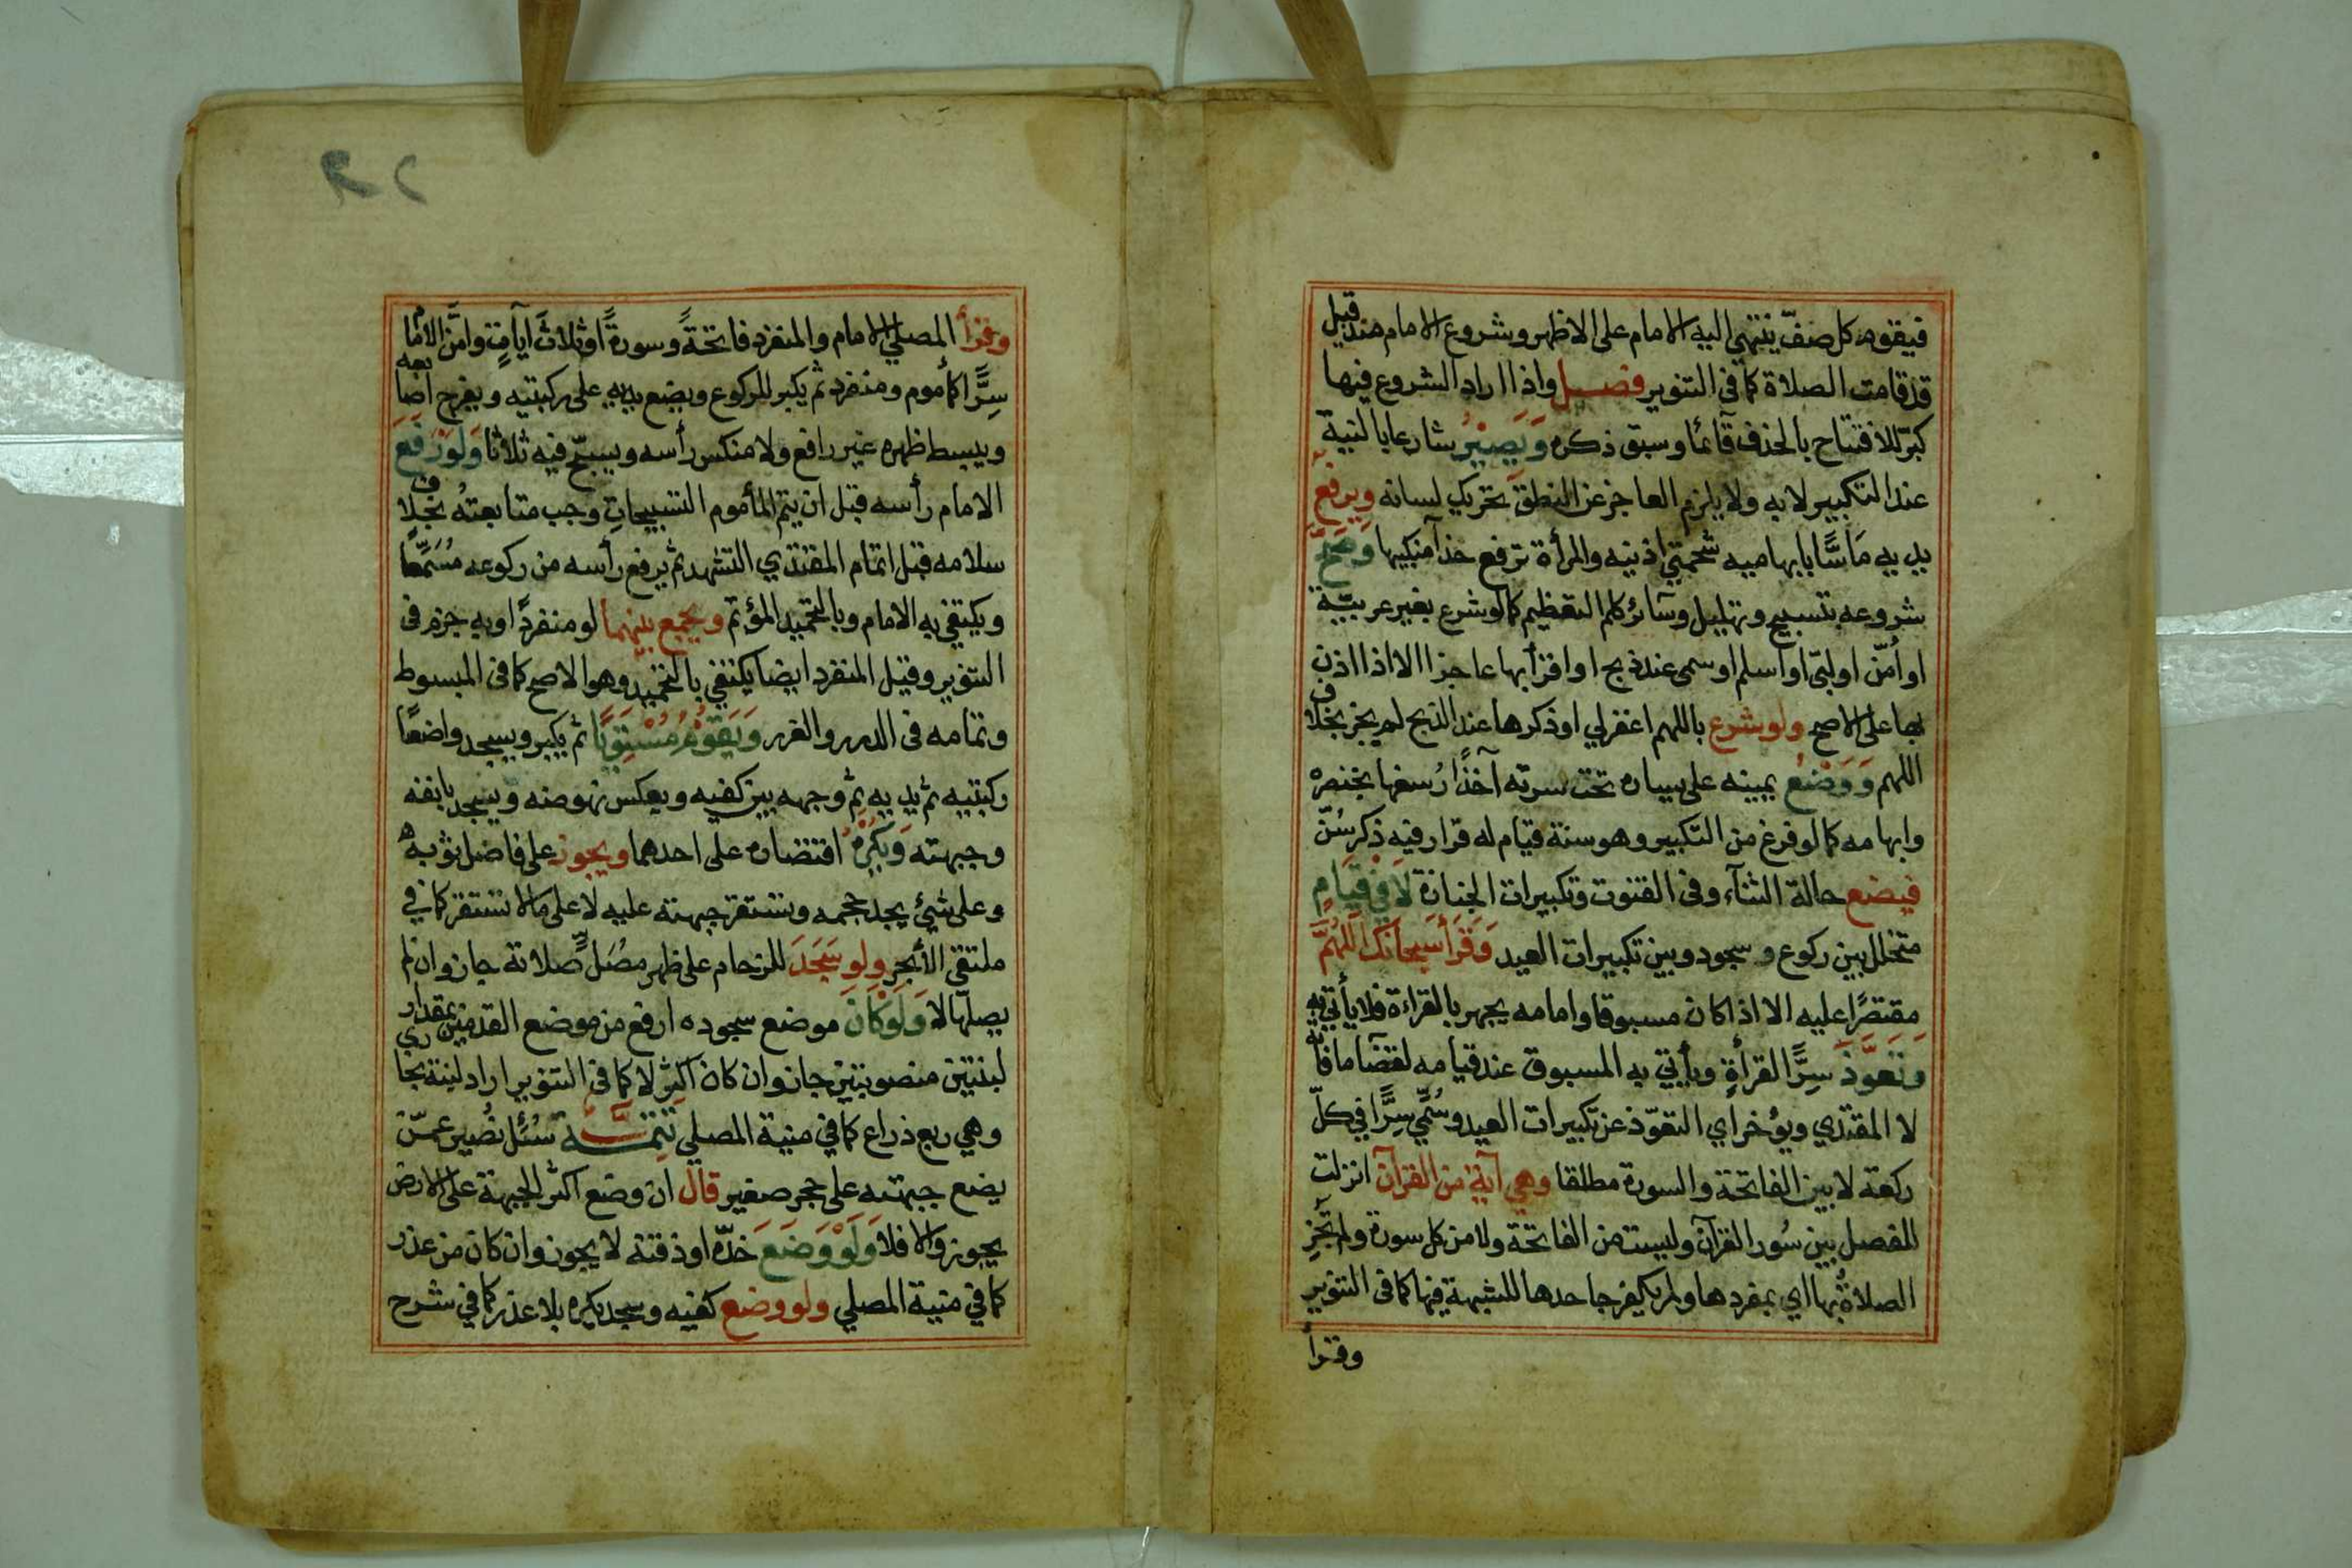 فيقوم كل صفّ ينتهى اليه الامام على الاظهر وشروع الامام منذ قيل
قد قامت الصلاة كما فى التنوير فصل واذا اراد الشروع فيها
كبّر للافتتاح بالحذف قآئما وسبق ذكره وَيَصِيْرُ شارعا بالنية
عند التكبير لا به ولا يلزم العاجز عن النطق تحريك لسانه ويرفع
يديه مَاسًّا بابهاميه شحمتي اذنيه والمرأة ترفع حذآ منكبيها وَصَحَّ
شروعه بتسبيح وتهليل وسآئر كلم التعظيم كما لو شرع بغير عربيّة
او أمّن او لبّى او اسلم او سمى عند ذبح او اقرأ بها عاجزا الا اذا اذن
بها على الاصح ولو شرع باللهم اغفرلي او ذكرها عند الذبح لم يجز بخلاف
اللهم وَوَضَعَ يمينه على يساره تحت سرته آخذًا رُسغها بخنصره
وابهامه كما لو فرغ من التكبير وهو سنة قيام له قرار فيه ذكر سُنّ
فيضع حالة الثنآء وفى القنوت وتكبيرات الجنازة لَا فِىْ قِيَامٍ
متخلل بين ركوع وسجود وبين تكبيرات العيد وَقَرَأَ سبحانك اللّٰهُمَّ
مقتصرًا عليه الا اذا كان مسبوقا وامامه يجهر بالقراءة فلا يأتي به
وتَعَوَّذَ سِرًّا القرأةٍ ويأتي به المسبوق عند قيامه لقضآ ما فاته
لا المقتدي ويؤخر اي التعوّذ عن تكبيرات العيد وسُمّي سِرًّا في كلّ
ركعة لا بين الفاتحة والسورة مطلقا وهي آية من القرآن انزلت
للفصل بين سُور القرآن وليست من الفاتحة ولا من كل سورة ولم تجز
الصلاةُ بها اي بمفردها ولم يكفر جاحدها للشبهة فيها كما فى التنوير
وقرأ
وقرأ المصلي الامام والمنفرد فاتحةً وسورةً او ثلاثَ آياتٍ وامَّن الامام
سِرًّا كمأموم ومنفرد ثم يكبر للركوع ويضع يديه على ركبتيه ويفرج اصابعه
ويبسط ظهره غير رافع ولا منكس رأسه ويسبّح فيه ثلاثا وَلَوْ رَفَعَ
الامام رأسه قبل ان يتم المأموم التسبيحاتِ وجب متابعتهُ بخلاف
سلامه قبل اتمام المقتدي التشهد ثم يرفع رأسه من ركوعه مُسَمِّعا
ويكتفي به الامام وبالتحميد المؤتم ويجمع بينهما لو منفردًا وبه جزم فى
التنوير وقيل المنفرد ايضا يكتفي بالتحميد وهو الاصح كما فى المبسوط
وتمامه فى الدرر والغرر وَيَقوْمُ مُسْتَوِيًا ثم يكبر ويسجد واضعًا
ركبتيه ثم يديه ثم وجهه بين كفيه ويعكس نهوضه ويسجد بانفه
وجبهته وَيكْرَهُ اقتصاره على احدهما ويجوز على فاضل ثوبه
وعلى شيئ يجد حجمه وتستقر جبهته عليه لا على ما لا تستقر كما في
ملتقى الأبحر ولو سَجَدَ للزحام على ظهر مصَلٍّ صلاته جاز وان لم
يصلّها لا وَلَوْ كَانَ موضع سجوده ارفع من موضع القدمين بمقدار
لبنتين منصوبتين جاز وان كان اكثر لا كما فى التنوير اراد لبنة بخارى
وهي ربع ذراع كما في منية المصلي تتمَّة سُئل نُصير عمّن
يضع جبهته على حجر صغير قال ان وضع اكثر الجبهة على الارض
يجوز والا فلا وَلَوْ وَضَعَ خدّه او ذقنه لا يجوز وان كان من عذر
كما في منية المصلي ولو وضع كفيه وسجد يكره بلا عذر كما في شرح